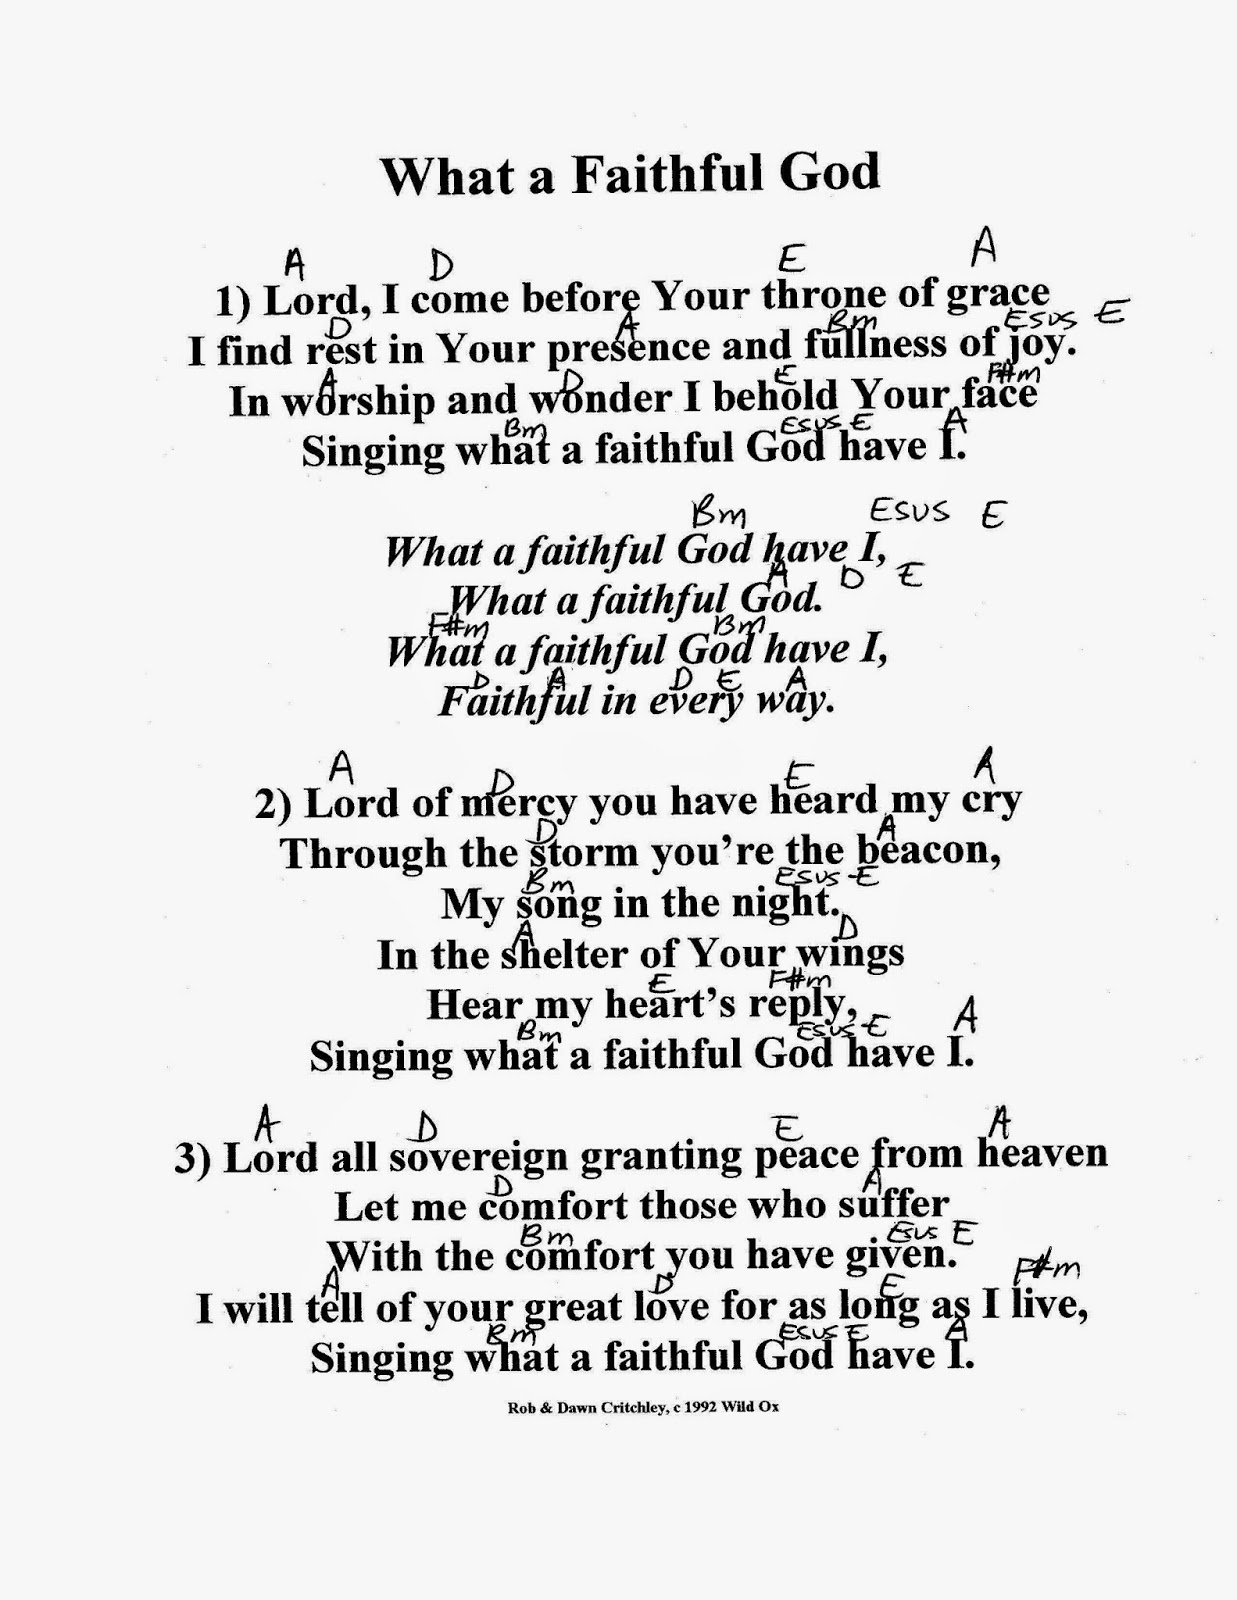 What a Faithful God
A D E A
1) Lord, I come before Your throne of grace
D A Bm Esus E
I find rest in Your presence and fullness of joy.
A D E F#m
In worship and wonder I behold Your face
Bm Esus E A
Singing what a faithful God have I.
Bm Esus E
What a faithful God have I,
A D E
What a faithful God.
F#m Bm
What a faithful God have I,
D A D E A
Faithful in every way.
A D E A
2) Lord of mercy you have heard my cry
D A
Through the storm you're the beacon,
Bm Esus E
My song in the night.
A D
In the shelter of Your wings
E F#m
Hear my heart's reply,
Bm Esus E A
Singing what a faithful God have I.
A D E A
3) Lord all sovereign granting peace from heaven
D A
Let me comfort those who suffer
Bm Esus E
With the comfort you have given.
A D E F#m
I will tell of your great love for as long as I live,
Bm Esus E A
Singing what a faithful God have I.
Rob & Dawn Critchley, c 1992 Wild Ox